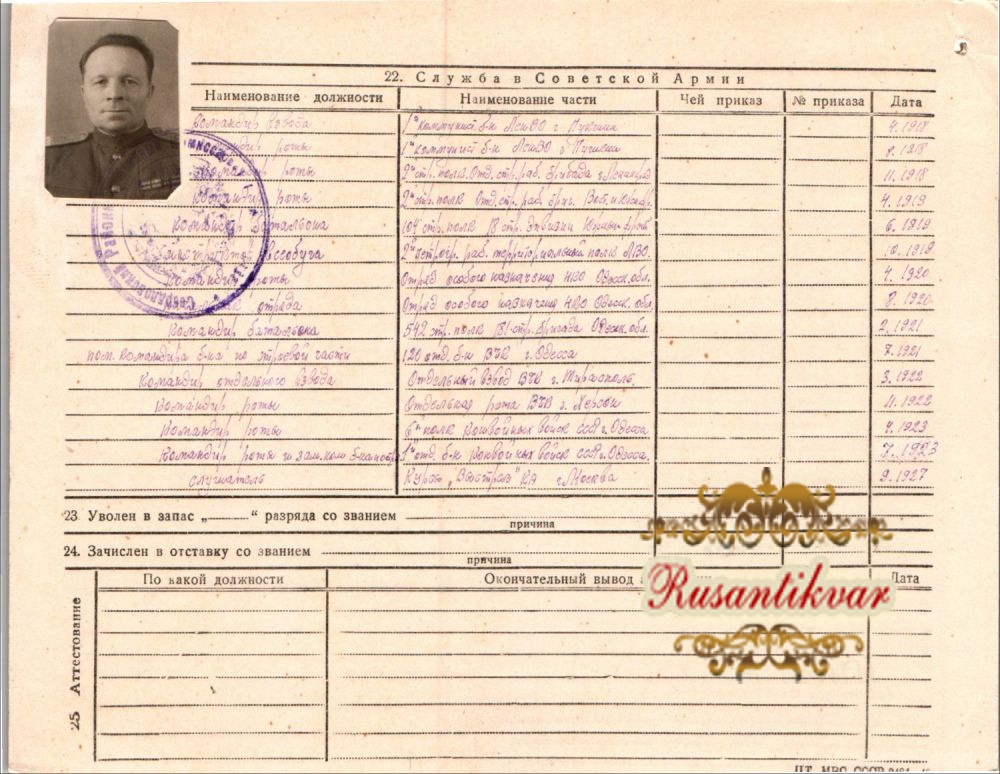 22. Служба в Советской Армии
Наименование должности Наименование части Чей приказ № приказа Дата
командир взвода 1й коммунист б-н г. Пушкин 4.1918
роты 1й коммунист б-н 8.1918
командир роты 2й стр. полк Отд. стр. раб. бригада г. Ленинград 11.1918
командир роты 2й стр. полк Отд. стр. раб. бриг. 4.1919
командир батальона 104 стр. полк 18 стр. дивизии 6.1919
инструктор всевобуча раб. территориальный полк ЛВО. 10.1919
командир роты Отряд особого назначения Одесск. обл. 4.1920
отряда Отряд особого назначения Одесск. обл. 8.1920
командир батальона 542 стр. полк 181 стр. бригада Одесск. обл. 2.1921
пом. командира б-на по строевой части 120 отд. б-н ВЧК г. Одесса 7.1921
командир отдельного взвода Отдельный взвод ВЧК г. Тирасполь 3.1922
командир роты Отдельная рота ВЧК г. Херсон 1922
командир роты 6й полк конвойных войск СССР г. Одесса 4.1923
командир роты и зам. ком. 1й отд. б-н конвойных войск СССР г. Одесса. 7.1923
слушатель Курсы „Выстрел" КА г. Москва 9.1927
23. Уволен в запас „———“ разряда со званием
причина
24. Зачислен в отставку со званием
причина
25 Аттестование
По какой должности Окончательный вывод Дата
Rusantikvar